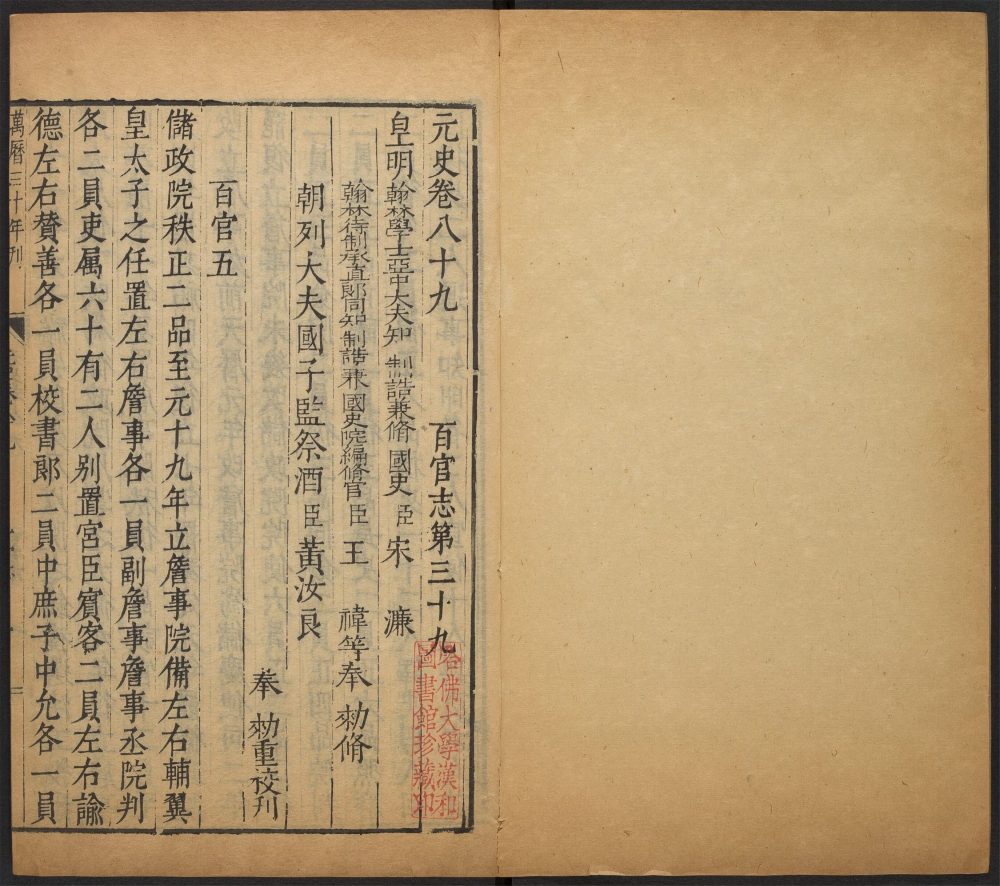 元史卷八十九 百官志第三十九
皇明翰林學士亞中大夫知 制誥兼脩 國史 臣 宋 濂
翰林待制承直郎同知 制誥兼 國史院編脩官 臣 王 禕等奉 勑脩
朝列大夫國子監祭酒 臣 黃汝良
奉 勑重校刊
百官五
儲政院秩正二品至元十九年立詹事院備左右輔翼
皇太子之任置左右詹事各一員副詹事詹事丞院判
各二員吏属六十有二人别置宮臣賓客二員左右諭
德左右贊善各一員校書郎二員中庶子中允各一員
萬曆三十年刊
哈佛大學漢和
圖書館珍藏印